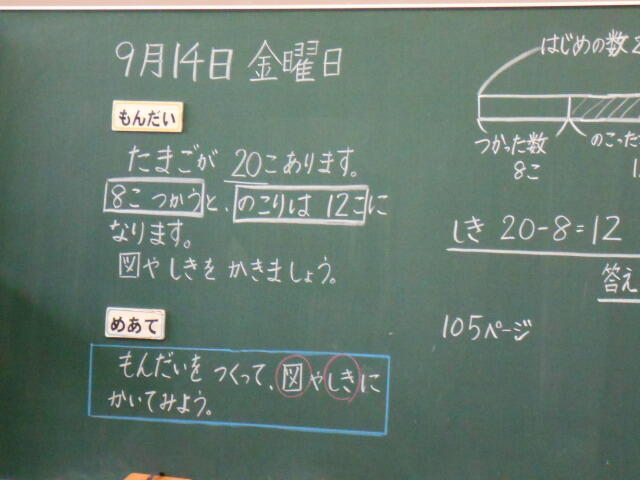 9月14日 金曜日
もんだい
たまごが 20こあります。
8こ つかうと、のこりは 12こに
なります。
図や しきを かきましょう。
めあて
もんだいを つくって、図やしきに
かいてみよう。
はじめの数2
つかった数
8こ
のこった
1
しき 20-8=12
答え
105ページ